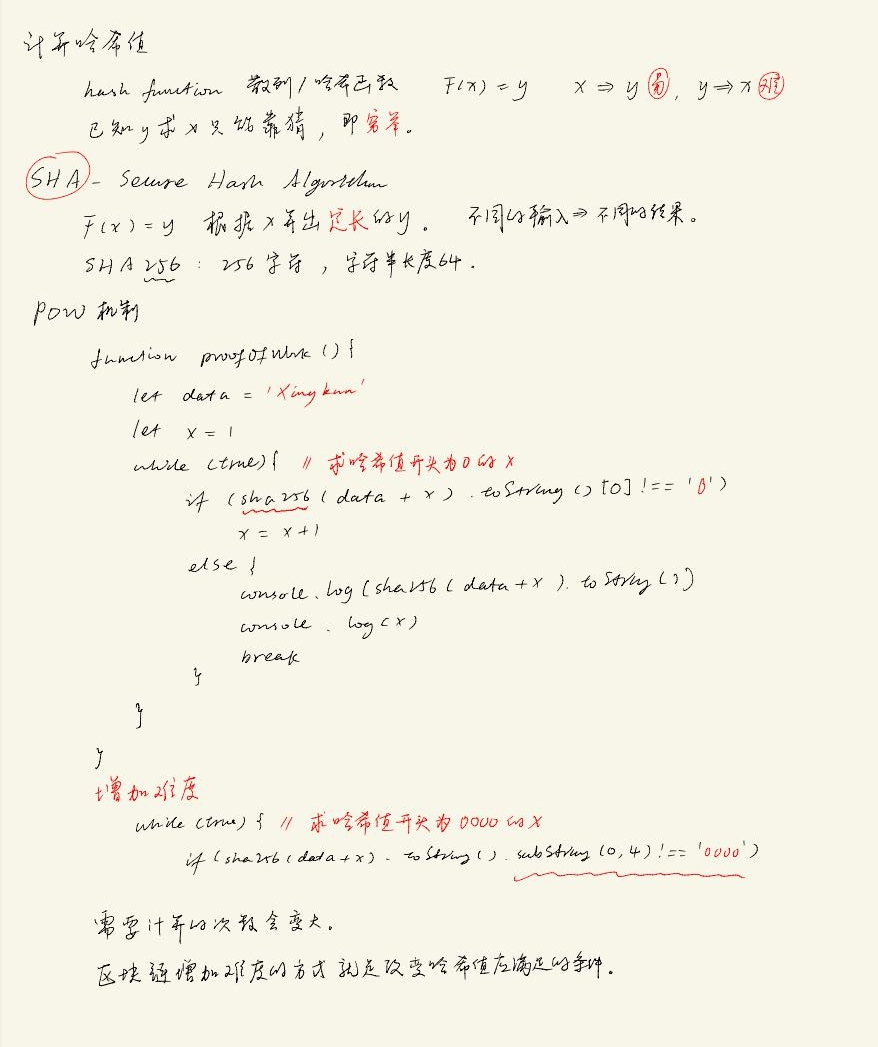 计算哈希值
hash function 散列/哈希函数 F(x) = y x ⇒ y 易, y ⇒ x 难
已知y求x只能靠猜，即穷举。
SHA - Secure Hash Algorithm
F(x) = y 根据x算出定长的y。 不同的输入⇒不同的结果。
SHA256 : 256字符，字符串长度64.
POW 机制
function proofOfWork () {
let data = 'Xingkun'
let x = 1
while (true) { // 求哈希值开头为0的x
if (sha256 (data + x) . toString () [0] !== '0')
x = x+1
else {
console.log (sha256 (data + x). toString ())
console . log (x)
break
}
}
}
增加难度
while (true) { // 求哈希值开头为0000的x
if (sha256 (data+x) . toString () . subString (0,4) !== '0000')
需要计算的次数会变大。
区块链增加难度的方式就是改变哈希值应满足的条件.